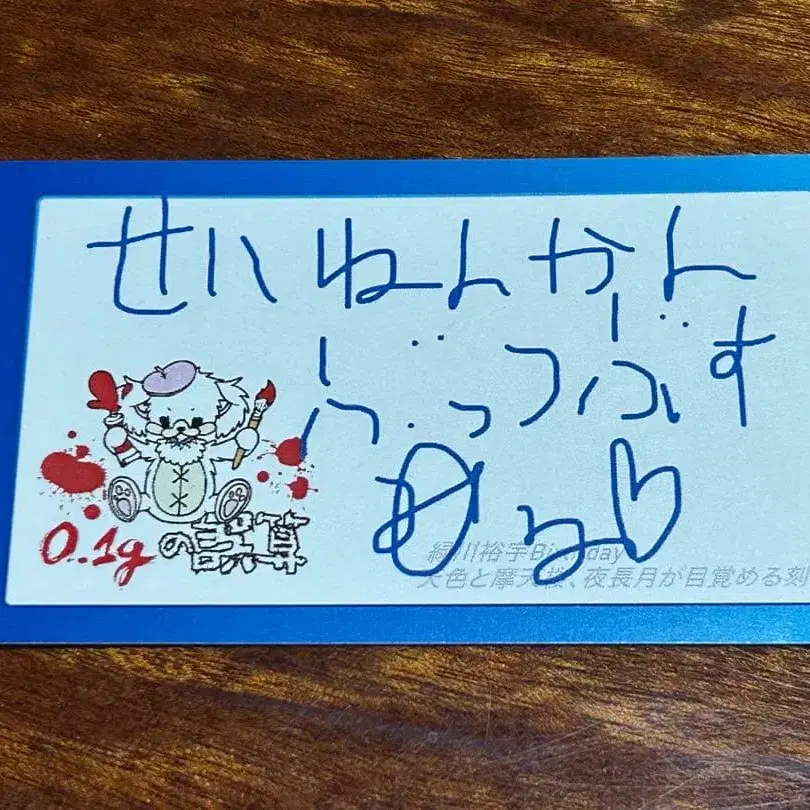 せいねんかん
ぶっつぶす
0.1gの誤算
緑川裕宇Birthday
天色と摩天楼、夜長月が目覚める刻